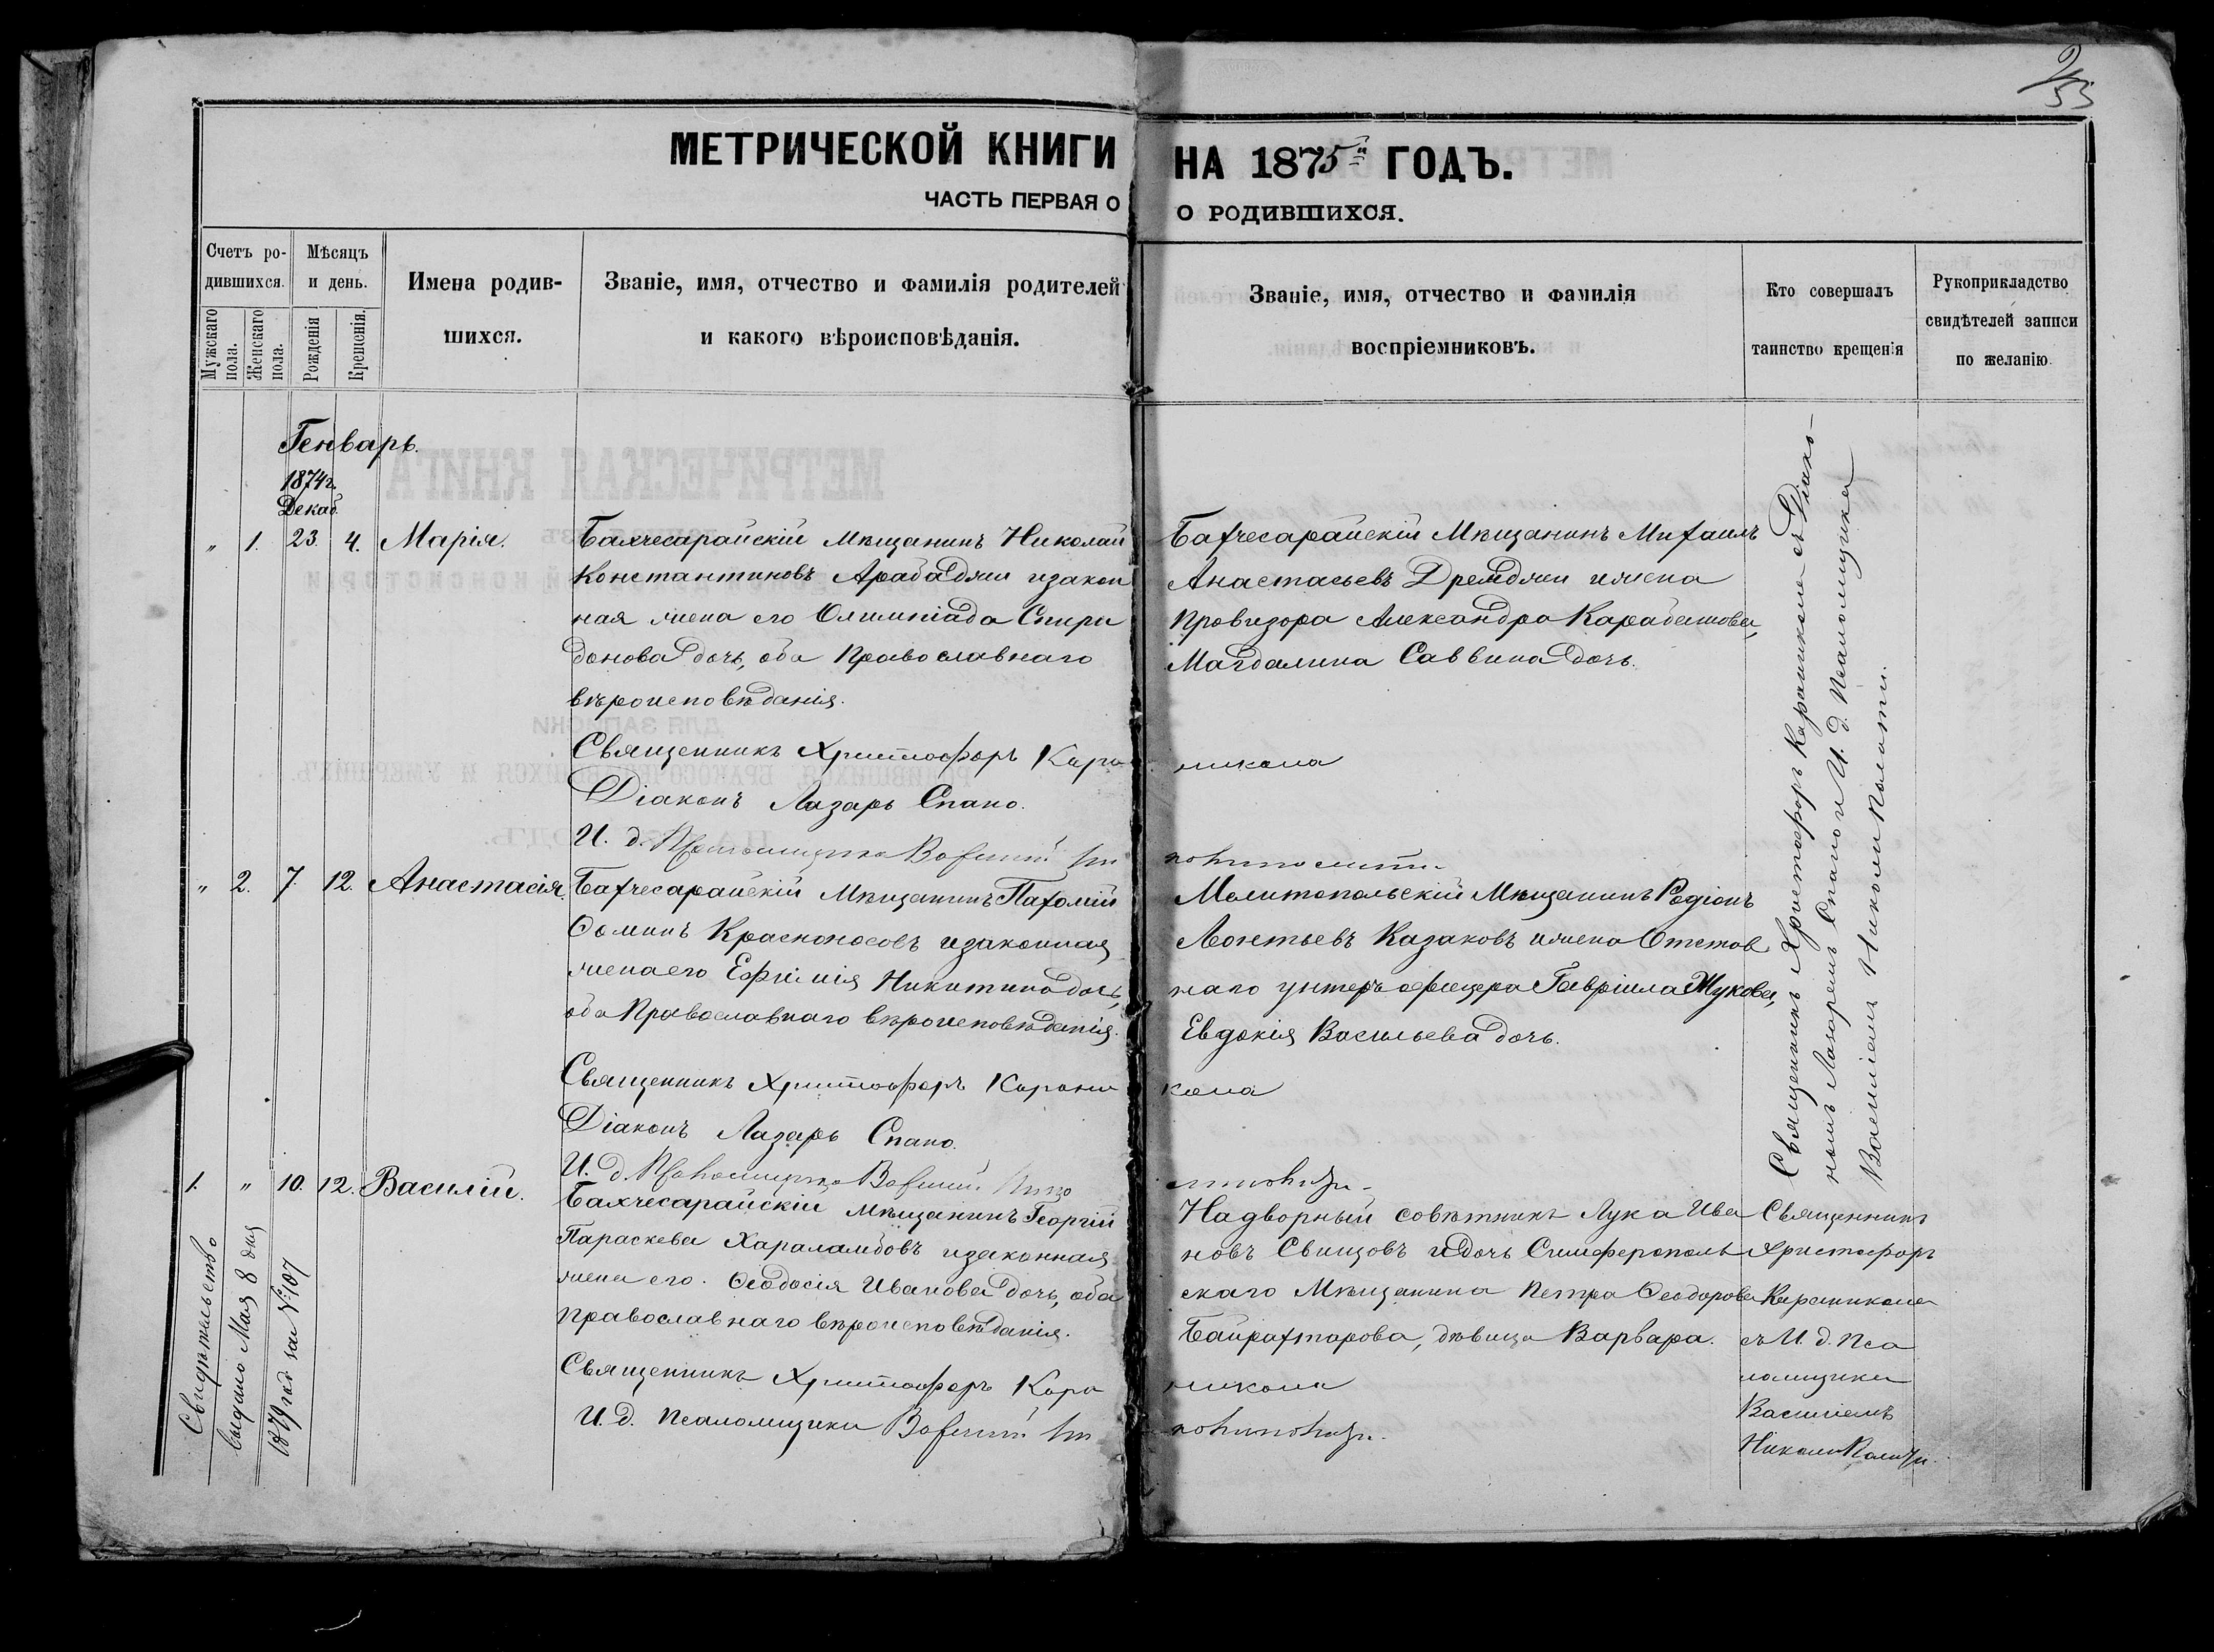 МЕТРИЧЕСКОЙ КНИГИ
ЧАСТЬ ПЕРВАЯ О
Счетъ ро-
дившихся.
Мужскаго пола.
Женскаго пола.
Мѣсяцъ
и день.
Рожденія
Крещенія.
Имена родив-
шихся.
Званіе, имя, отчество и фамилія родителей
и какого вѣроисповѣданія.
Генварь.
1874 г.
Декаб
„ 1. 23. 4. Марія.
Бахчесарайскій Мѣщанинъ Николай
Константиновъ Арабаджи и закон
ная жена его Олимпіада Спири
донова дочь, оба Православнаго
вѣроисповѣданія.
Священникъ Христофоръ Кара
Діаконъ Лазарь Спано.
И. д. Псаломщика
„ 2. 7. 12. Анастасія.
Бахчесарайскій Мѣщанинъ Пахомій
Ѳоминъ Красноносовъ и законная
жена его Ефимія Никитина дочь,
оба Православнаго вѣроисповѣданія.
Священникъ Христофоръ Карани
Діаконъ Лазарь Спано.
И. д. Псаломщика
1. „ 10. 12. Василій.
Бахчесарайскій Мѣщанинъ Георгій
Параскева Хараламбовъ и законная
жена его. Ѳеодосія Иванова дочь, оба
Православнаго вѣроисповѣданія.
Священникъ Христофоръ Кара
И. д. Псаломщика
Свидѣтельство
выдано Мая 8 дня
1879 год за № 107
НА 1875й ГОДЪ.
О РОДИВШИХСЯ.
Званіе, имя, отчество и фамилія
воспріемниковъ.
Кто совершалъ
таинство крещенія
Рукоприкладство
свидѣтелей записи
по желанію.
Бахчесарайскій Мѣщанинъ Михаилъ
Анастасьевъ Дремджи и жена
Провизора Александра Карабашова,
Магдалина Саввина дочь.
никола
Мелитопольскій Мѣщанинъ Родіонъ
Леонтьевъ Казаковъ и жена Отстав
наго унтеръ офицера Гавріила Жукова,
Евдокія Васильева дочь.
кола
Надворный совѣтникъ Лука Ива
новъ Свинцовъ и дочь Симферополь
скаго Мѣщанина Петра Ѳеодорова
Байрахтарова, дѣвица Варвара.
никола
Священникъ Христофоръ Караникола съ Діако-
номъ Лазаремъ Спано и И. д. Псаломщика
Василіемъ
Священникъ
Христофоръ
Караникола
съ И. д. Пса
ломщика
Василіемъ